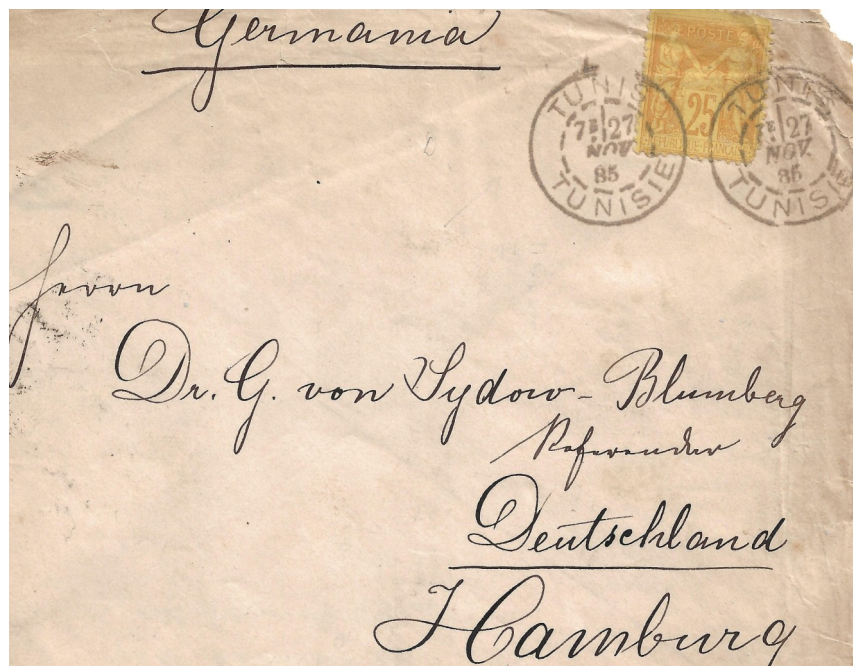 Germania
POSTES
25
REPUBLIQUE FRANCAISE
TUNIS
7E 27
NOV.
85
TUNISIE
TUNIS
7E 27
NOV.
85
TUNISIE
Herrn
Dr. G. von Sydow-Blumberg
Referendar
Deutschland
Hamburg